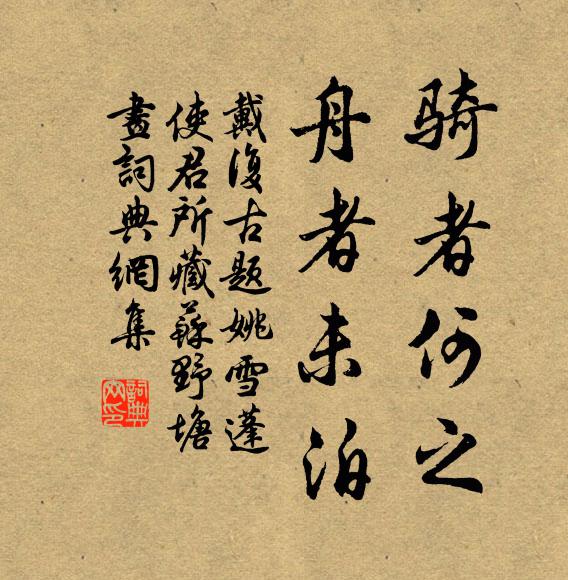 骑者何之
舟者未泊
戴復古题姚雪蓬
使君所藏蘇野塘
畫詞典網集
詞典
网印